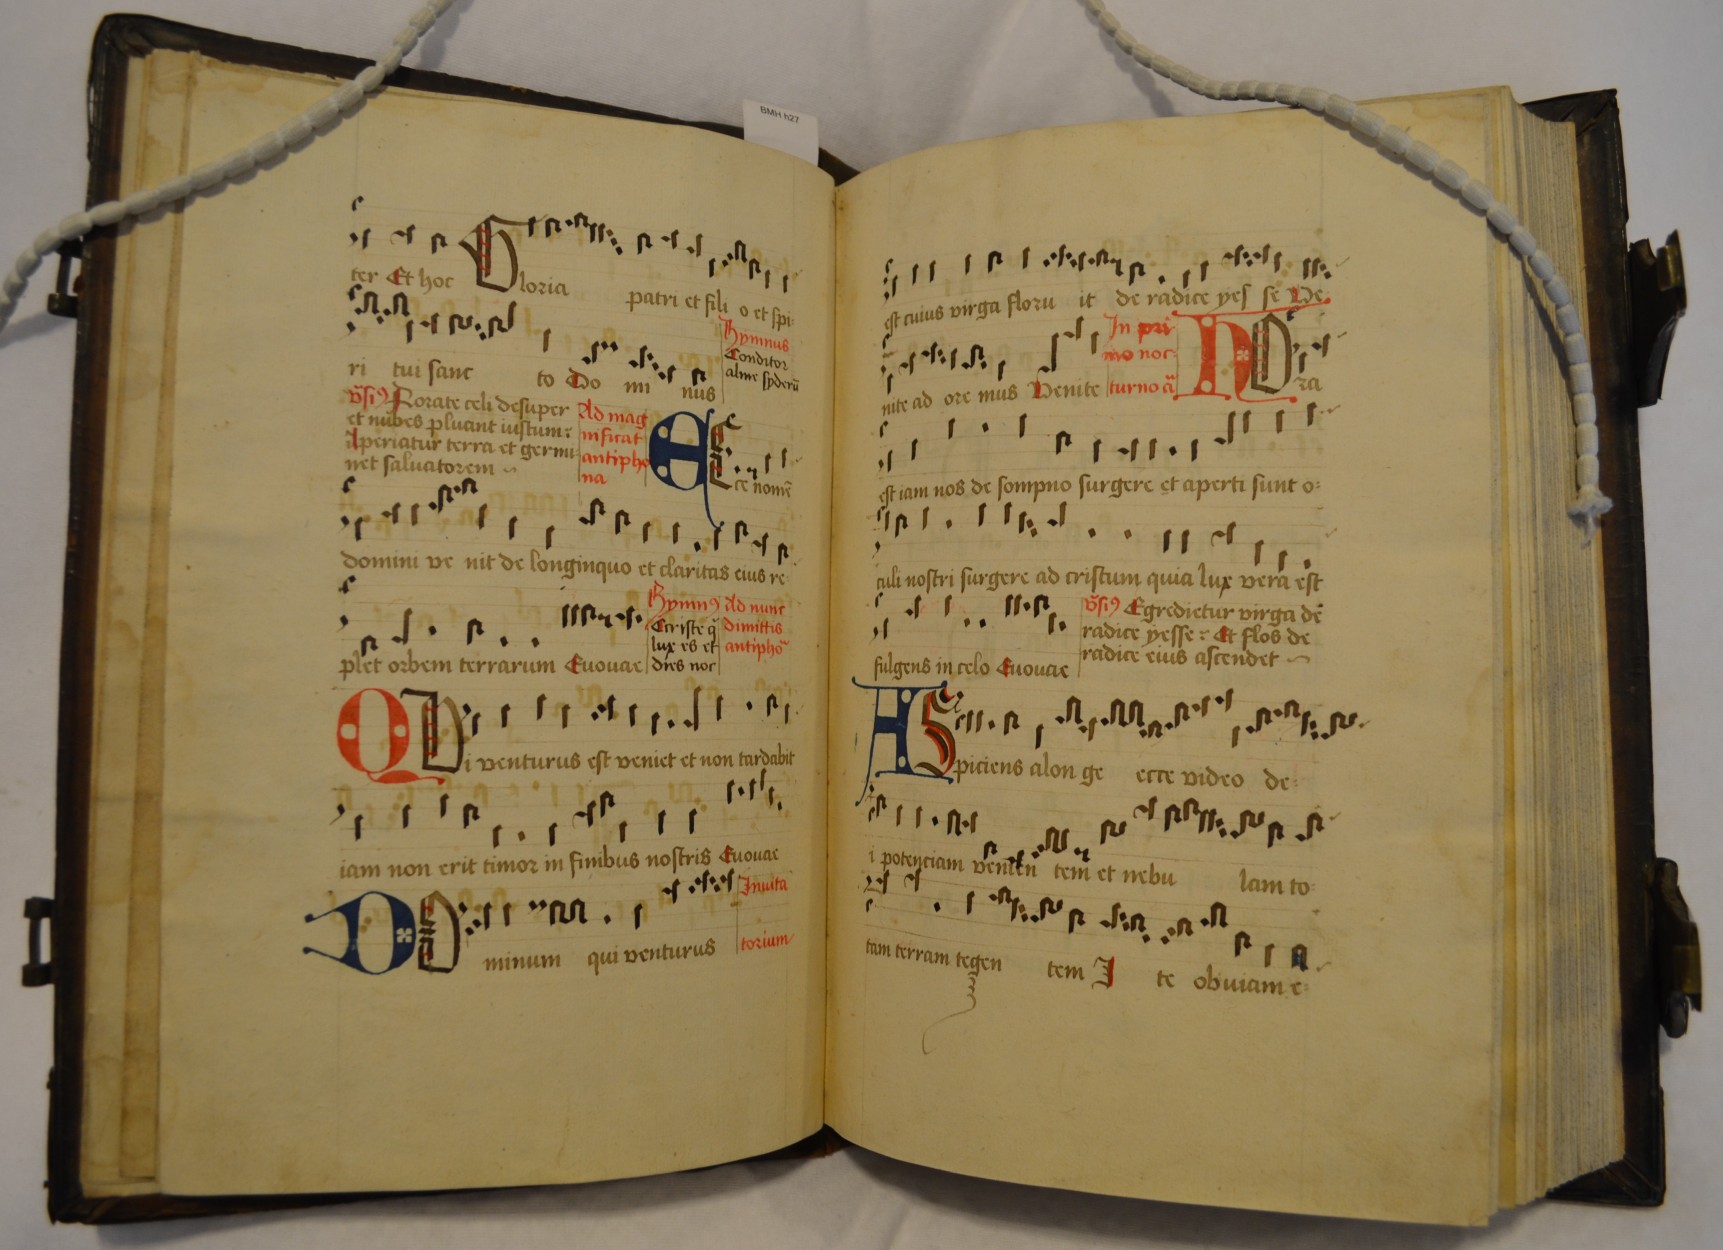 BMH h27
ter Et hoc Gloria patri et fili o et spi-
ri tui sanc to Do mi nus
Hymnus
Conditor
alme syderū
Rorate celi desuper
et nubes pluant iustum:
Aperiatur terra et germi-
net salvatorem
Ad mag
nificat
antipho
na
ECce nomē
domini ve nit de longinquo et claritas eius re-
plet orbem terrarum Euouae
Criste q̄
lux es et
dies noc
Ad nunc
dimittis
antipho
QUi venturus est veniet et non tardabit
iam non erit timor in finibus nostris Euouae
DOminum qui venturus
Invita
torium
est cuius virga floru it de radice yes se Ve-
nite ad ore mus Venite
In pri
mo noc-
turno ā
HOra
est iam nos de sompno surgere et aperti sunt o-
culi nostri surgere ad cristum quia lux vera est
fulgens in celo Euouae
Egredietur virga de
radice yesse: Et flos de
radice eius ascendet
ASpiciens alon ge ecce video de-
i potenciam venien tem et nebu lam to-
tam terram tegen tem I te obviam e-